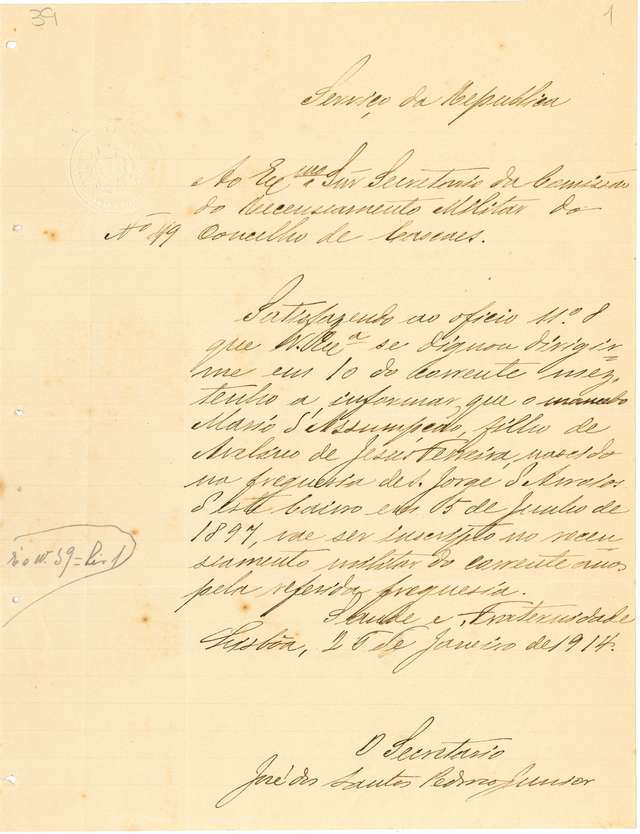 39
1
Serviço da Republica
Ao Ex.mo Snr Secretario da Comissão
do Recenseamento Militar do
Nº 49 Concelho de Cascaes.
Satisfazendo ao oficio nº. 8
que V. Ex.ª se dignou dirigir-
me em 10 do corrente mez,
tenho a informar, que o mancebo
Mario d'Assumpção, filho de
de Jesus Ferreira, nascido
na freguesia de S. Jorge d'Arroios
d'este bairro em 15 de Junho de
1897, vae ser inscripto no recen-
seamento militar do corrente ano
pela referida freguesia.
Saude e Fraternidade
Lisbôa, 26 de Janeiro de 1914.
O Secretario
José dos Santos Junior